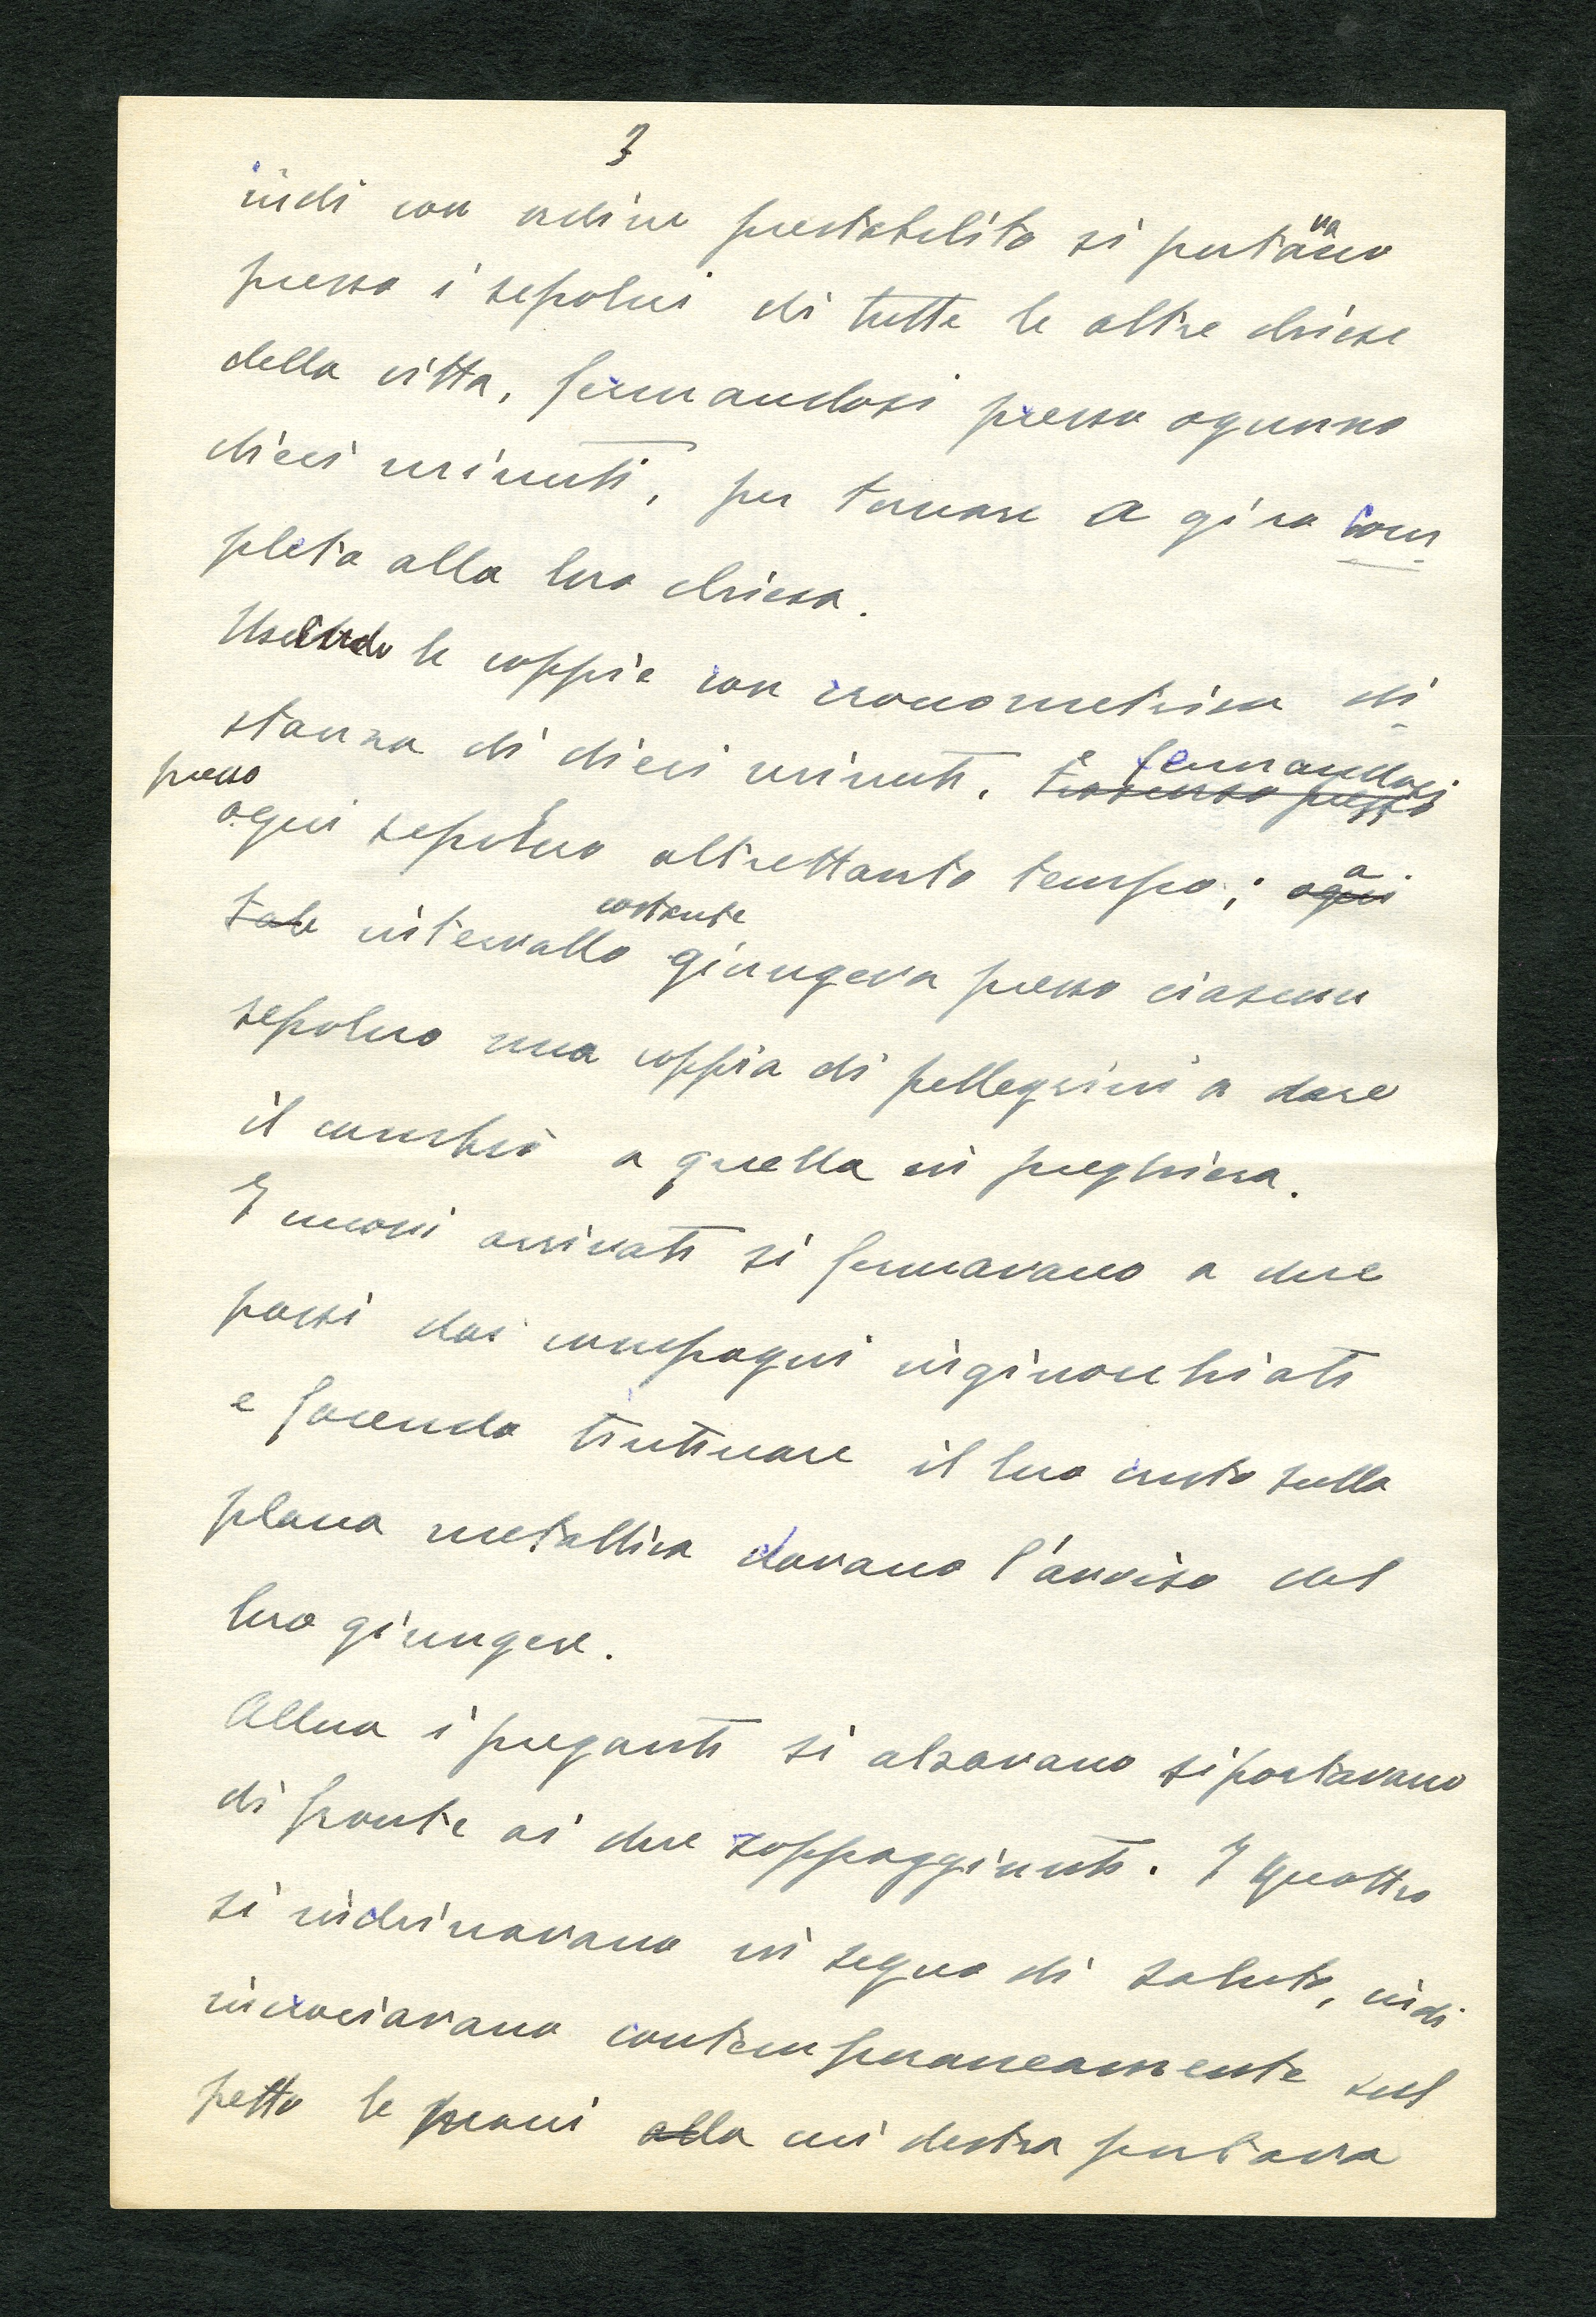 3
indi con ordine prestabilito si portavano
presso i sepolcri di tutte le altre chiese
della città, fermandosi presso ognuno
dieci minuti, per tornare a giro com
pleto alla loro chiesa.
Uscendo le coppie con cronometrica di
stanza di dieci minuti, e fermandosi
presso
ogni sepolcro altrettanto tempo; a
costante
intervallo giungeva presso ciascun
sepolcro una coppia di pellegrini a dare
il cambio a quella in preghiera.
I nuovi arrivati si fermavano a due
passi dai compagni inginocchiati
e facendo tintinnare il loro cristo sulla
placca metallica davano l'avviso del
loro giungere.
Allora i preganti si alzavano si portavano
di fronte ai due sopraggiunti. I quattro
si inchinavano in segno di saluto, indi
incrociavano contemporaneamente sul
petto le mani alla cui destra portava